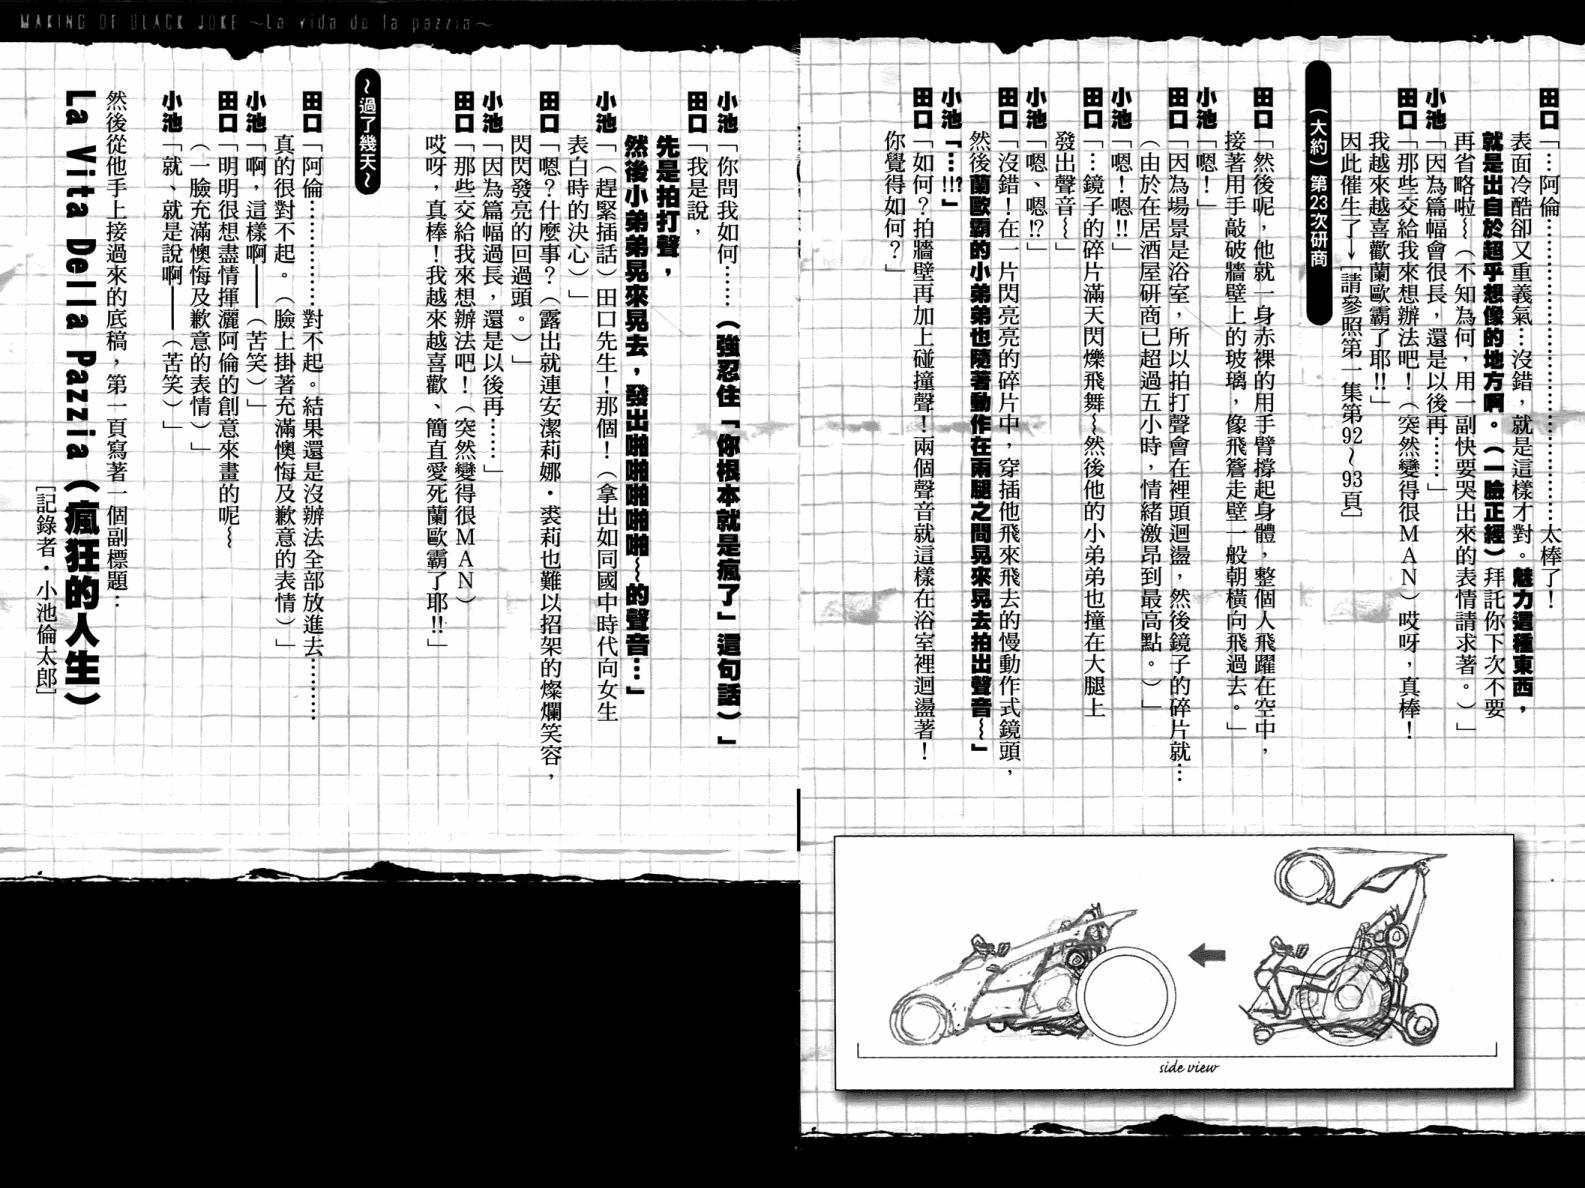 田口「…阿倫……………………………………太棒了！
表面冷酷卻又重義氣…沒錯，就是這樣才對。魅力這種東西，
就是出自於超乎想像的地方啊。（一臉正經）拜託你下次不要
再省略啦～（不知為何，用一副快要哭出來的表情請求著。）」
小池「因為篇幅會很長，還是以後再……」
田口「那些交給我來想辦法吧！（突然變得很MAN）哎呀，真棒！
我越來越喜歡蘭歐霸了耶!!」
因此催生了→［請參照第一集第92～93頁］
（大約）第23次研商
田口「然後呢，他就一身赤裸的用手臂撐起身體，整個人飛躍在空中，
接著用手敲破牆壁上的玻璃，像飛簷走壁一般朝橫向飛過去。」
小池「嗯！」
田口「因為場景是浴室，所以拍打聲會在裡頭迴盪，然後鏡子的碎片就…
（由於在居酒屋研商已超過五小時，情緒激昂到最高點。）」
小池「嗯！嗯!!」
田口「…鏡子的碎片滿天閃爍飛舞～然後他的小弟弟也撞在大腿上
發出聲音～」
小池「嗯、嗯!?」
田口「沒錯！在一片閃亮亮的碎片中，穿插他飛來飛去的慢動作式鏡頭，
然後蘭歐霸的小弟弟也隨著動作在兩腿之間晃來晃去拍出聲音～」
小池「…!!!?」
田口「如何？拍牆壁再加上碰撞聲！兩個聲音就這樣在浴室裡迴盪著！
你覺得如何？」
side view
MAKING OF BLACK JOKE ～La vida de la pazzia～
小池「你問我如何……（強忍住「你根本就是瘋了」這句話）」
田口「我是說，
先是拍打聲，
然後小弟弟晃來晃去，發出啪啪啪啪啪～的聲音…」
小池「（趕緊插話）田口先生！那個！（拿出如同國中時代向女生
表白時的決心）」
田口「嗯？什麼事？（露出就連安潔莉娜・裘莉也難以招架的燦爛笑容，
閃閃發亮的回過頭。）」
小池「因為篇幅過長，還是以後再……」
田口「那些交給我來想辦法吧！（突然變得很MAN）
哎呀，真棒！我越來越喜歡、簡直愛死蘭歐霸了耶!!」
～過了幾天～
田口「阿倫……………對不起。結果還是沒辦法全部放進去…………
真的很對不起。（臉上掛著充滿懊悔及歉意的表情）」
小池「啊，這樣啊——（苦笑）」
田口「明明很想盡情揮灑阿倫的創意來畫的呢～
（一臉充滿懊悔及歉意的表情）」
小池「就、就是說啊——（苦笑）」
然後從他手上接過來的底稿，第一頁寫著一個副標題…
La Vita Della Pazzia（瘋狂的人生）
［記錄者・小池倫太郎］